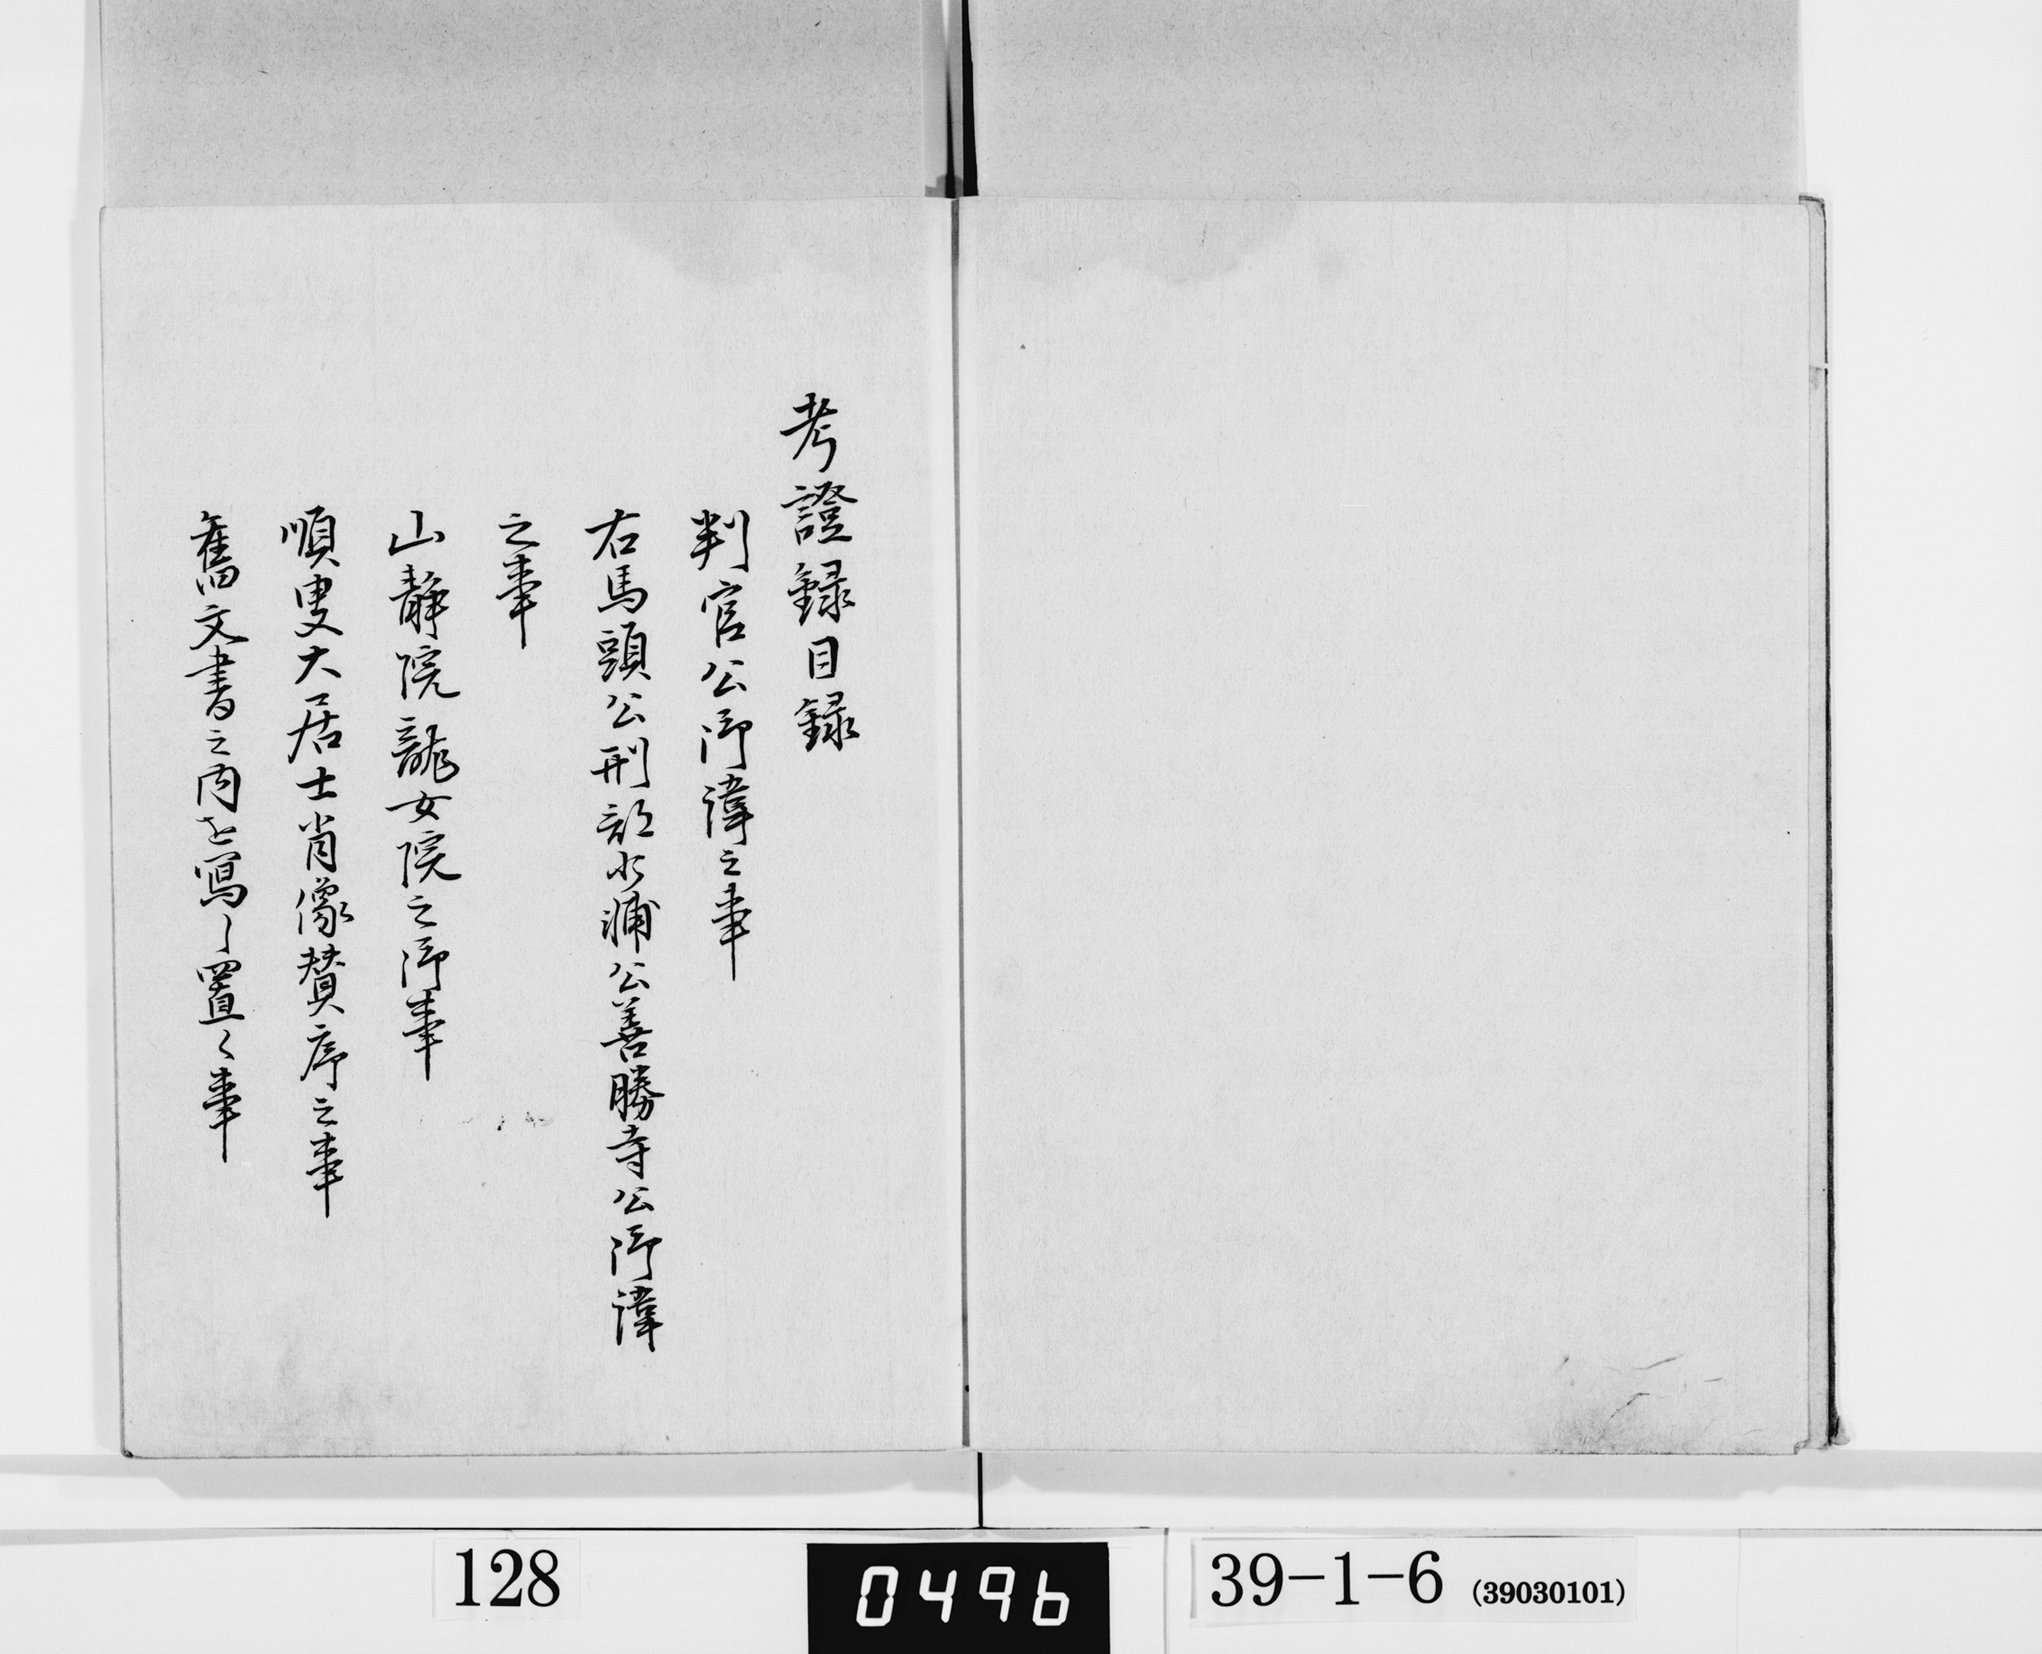 考證録目録
判官公御諱之事
右馬頭公刑部少浦公善勝寺公御諱
之事
山静院龍女院之御事
順叟大居士肖像賛序之事
舊文書之内を寫し置く事
128
0496
39-1-6 (39030101)